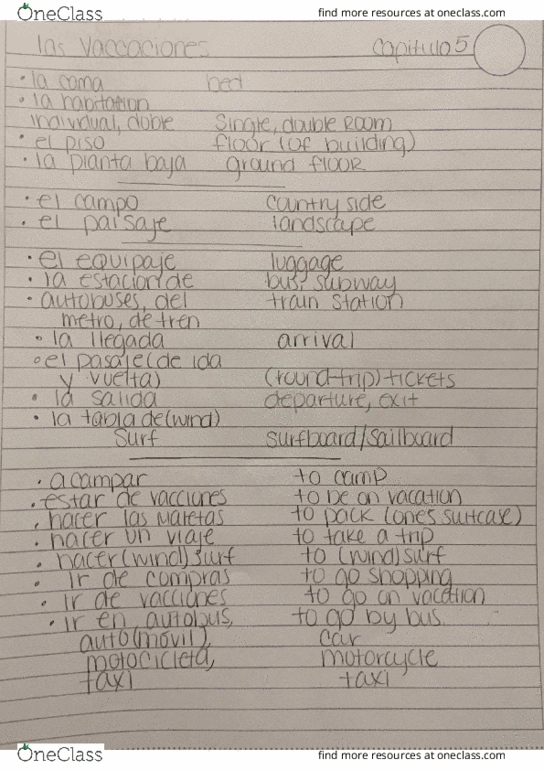 OneClass find more resources at oneclass.com
las Vaccaciones Capitulo 5
• la cama bed
• la habitation
individual, doble Single, double Room
• el piso floor (of building)
• la planta baja ground floor
• el campo country side
• el paisaje landscape
• el equipaje luggage
• la estacion de bus, subway
• autobuses, del train station
metro, de tren
• la llegada arrival
• el pasaje (de ida
y vuelta) (round-trip) tickets
• la salida departure, exit
• la tabla de (wind)
Surf surfboard/sailboard
• acampar to camp
• estar de vacciones to be on vacation
• hacer las maletas to pack (ones suitcase)
• hacer un viaje to take a trip
• hacer (wind) surf to (wind) surf
• ir de compras to go shopping
• ir de vacciones to go on vacation
• ir en autobus, to go by bus
auto(movil), car
motocicleta, motorcycle
taxi taxi
OneClass find more resources at oneclass.com